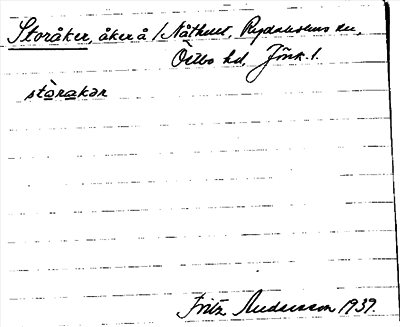 Storåker, åker å /Nåthult, Rydaholms sn,
Östbo hd, Jönk. l.
storakər
Fritz Andersson 1939.